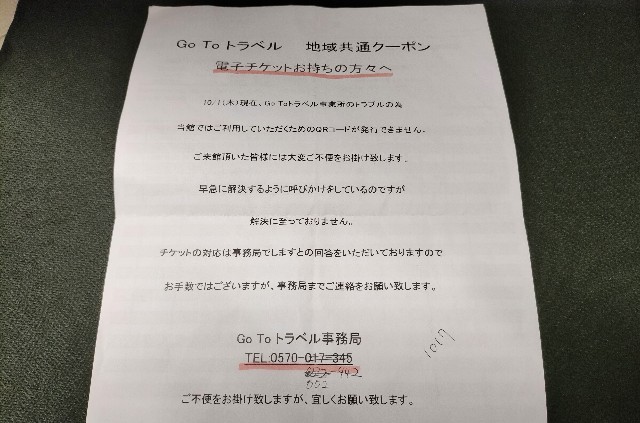 Go To トラベル　地域共通クーポン
電子チケットお持ちの方々へ
10/1(木)現在、Go Toトラベル事業所のトラブルの為
当館ではご利用していただくためのQRコードが発行できません。
ご来館頂いた皆様には大変ご不便をお掛け致します。
早急に解決するように呼びかけをしているのですが
解決に至っておりません。
チケットの対応は事務局でしますとの回答をいただいておりますので
お手数ではございますが、事務局までご連絡をお願い致します。
Go To トラベル事務局
TEL:0570-017-345
442
052
1017
ご不便をお掛け致しますが、宜しくお願い致します。